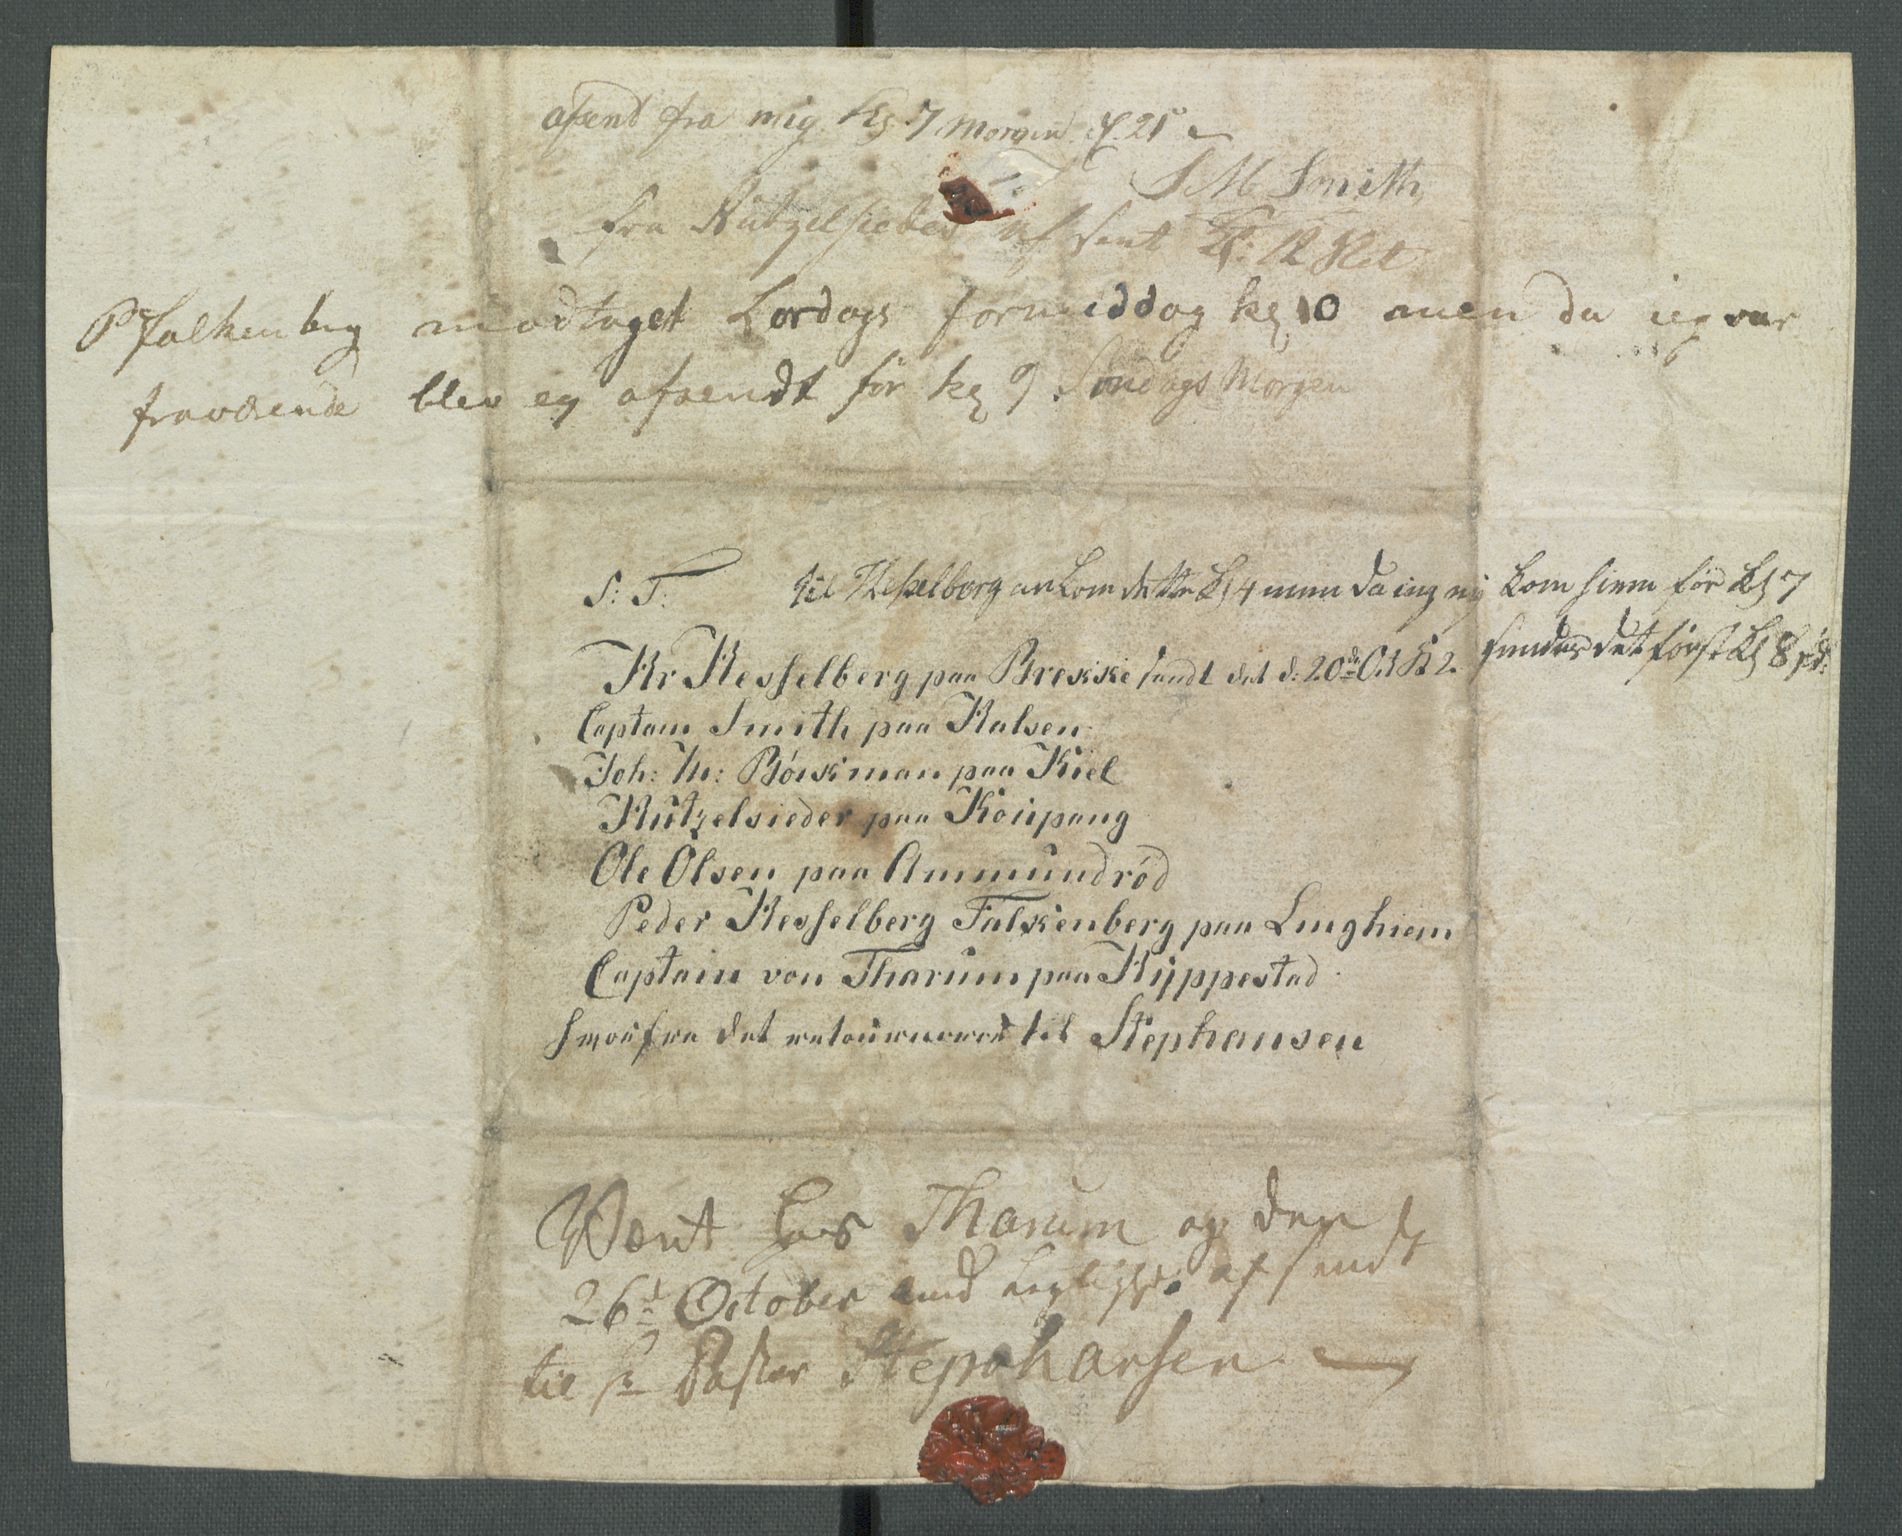 afsent fra mig Kl 7 Morgen d 21
S M Smith
fra Kützelsieder af sent Kl: 12 Slet
P Falkenberg modtaget Lordags formiddag kl 10 men da jeg var
fraværende blev ey afsendt för kl 9 Söndags Morgen
S: T: til Hesselberg ankom dette Kl 4 men da ieg ey kom hiem för Kl 7
sendes det först Kl 8
Hr Hesselberg paa Brekke sendt det d: 20de Oct Kl 2
Captain Smith paa Halsen
Joh: M: Börkman paa Kiel
Kützelsieder paa Koüpang
Ole Olsen paa Ammundröd
Peder Hesselberg Falkenberg paa Linghiem
Captain von Tharum paa Hyppestad
hvorfra det retourneres til Stephansen
Været hos Tharum og den
26de October afsendt
til Hr Pastor Stephansen